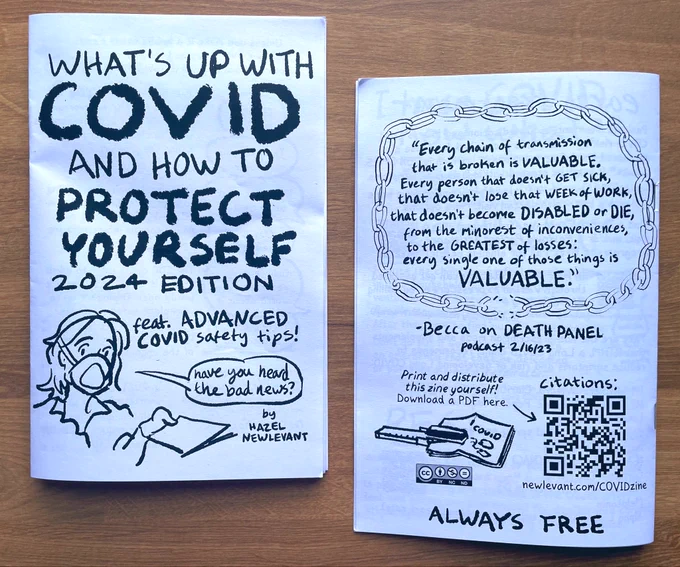 WHAT'S UP WITH
COVID
AND HOW TO
PROTECT
YOURSELF
2024 EDITION
feat. ADVANCED
COVID safety tips!
have you heard
the bad news?
by
HAZEL
NEWLEVANT
"Every chain of transmission
that is broken is VALUABLE.
Every person that doesn't GET SICK,
that doesn't lose that WEEK of WORK,
that doesn't become DISABLED or DIE,
from the minorest of inconveniences,
to the GREATEST of losses:
every single one of those things is
VALUABLE."
-Becca on DEATH PANEL
podcast 2/16/23
Print and distribute
this zine yourself!
Download a PDF here.
citations:
COVID
cc
BY NC ND
newlevant.com/COVIDzine
ALWAYS FREE